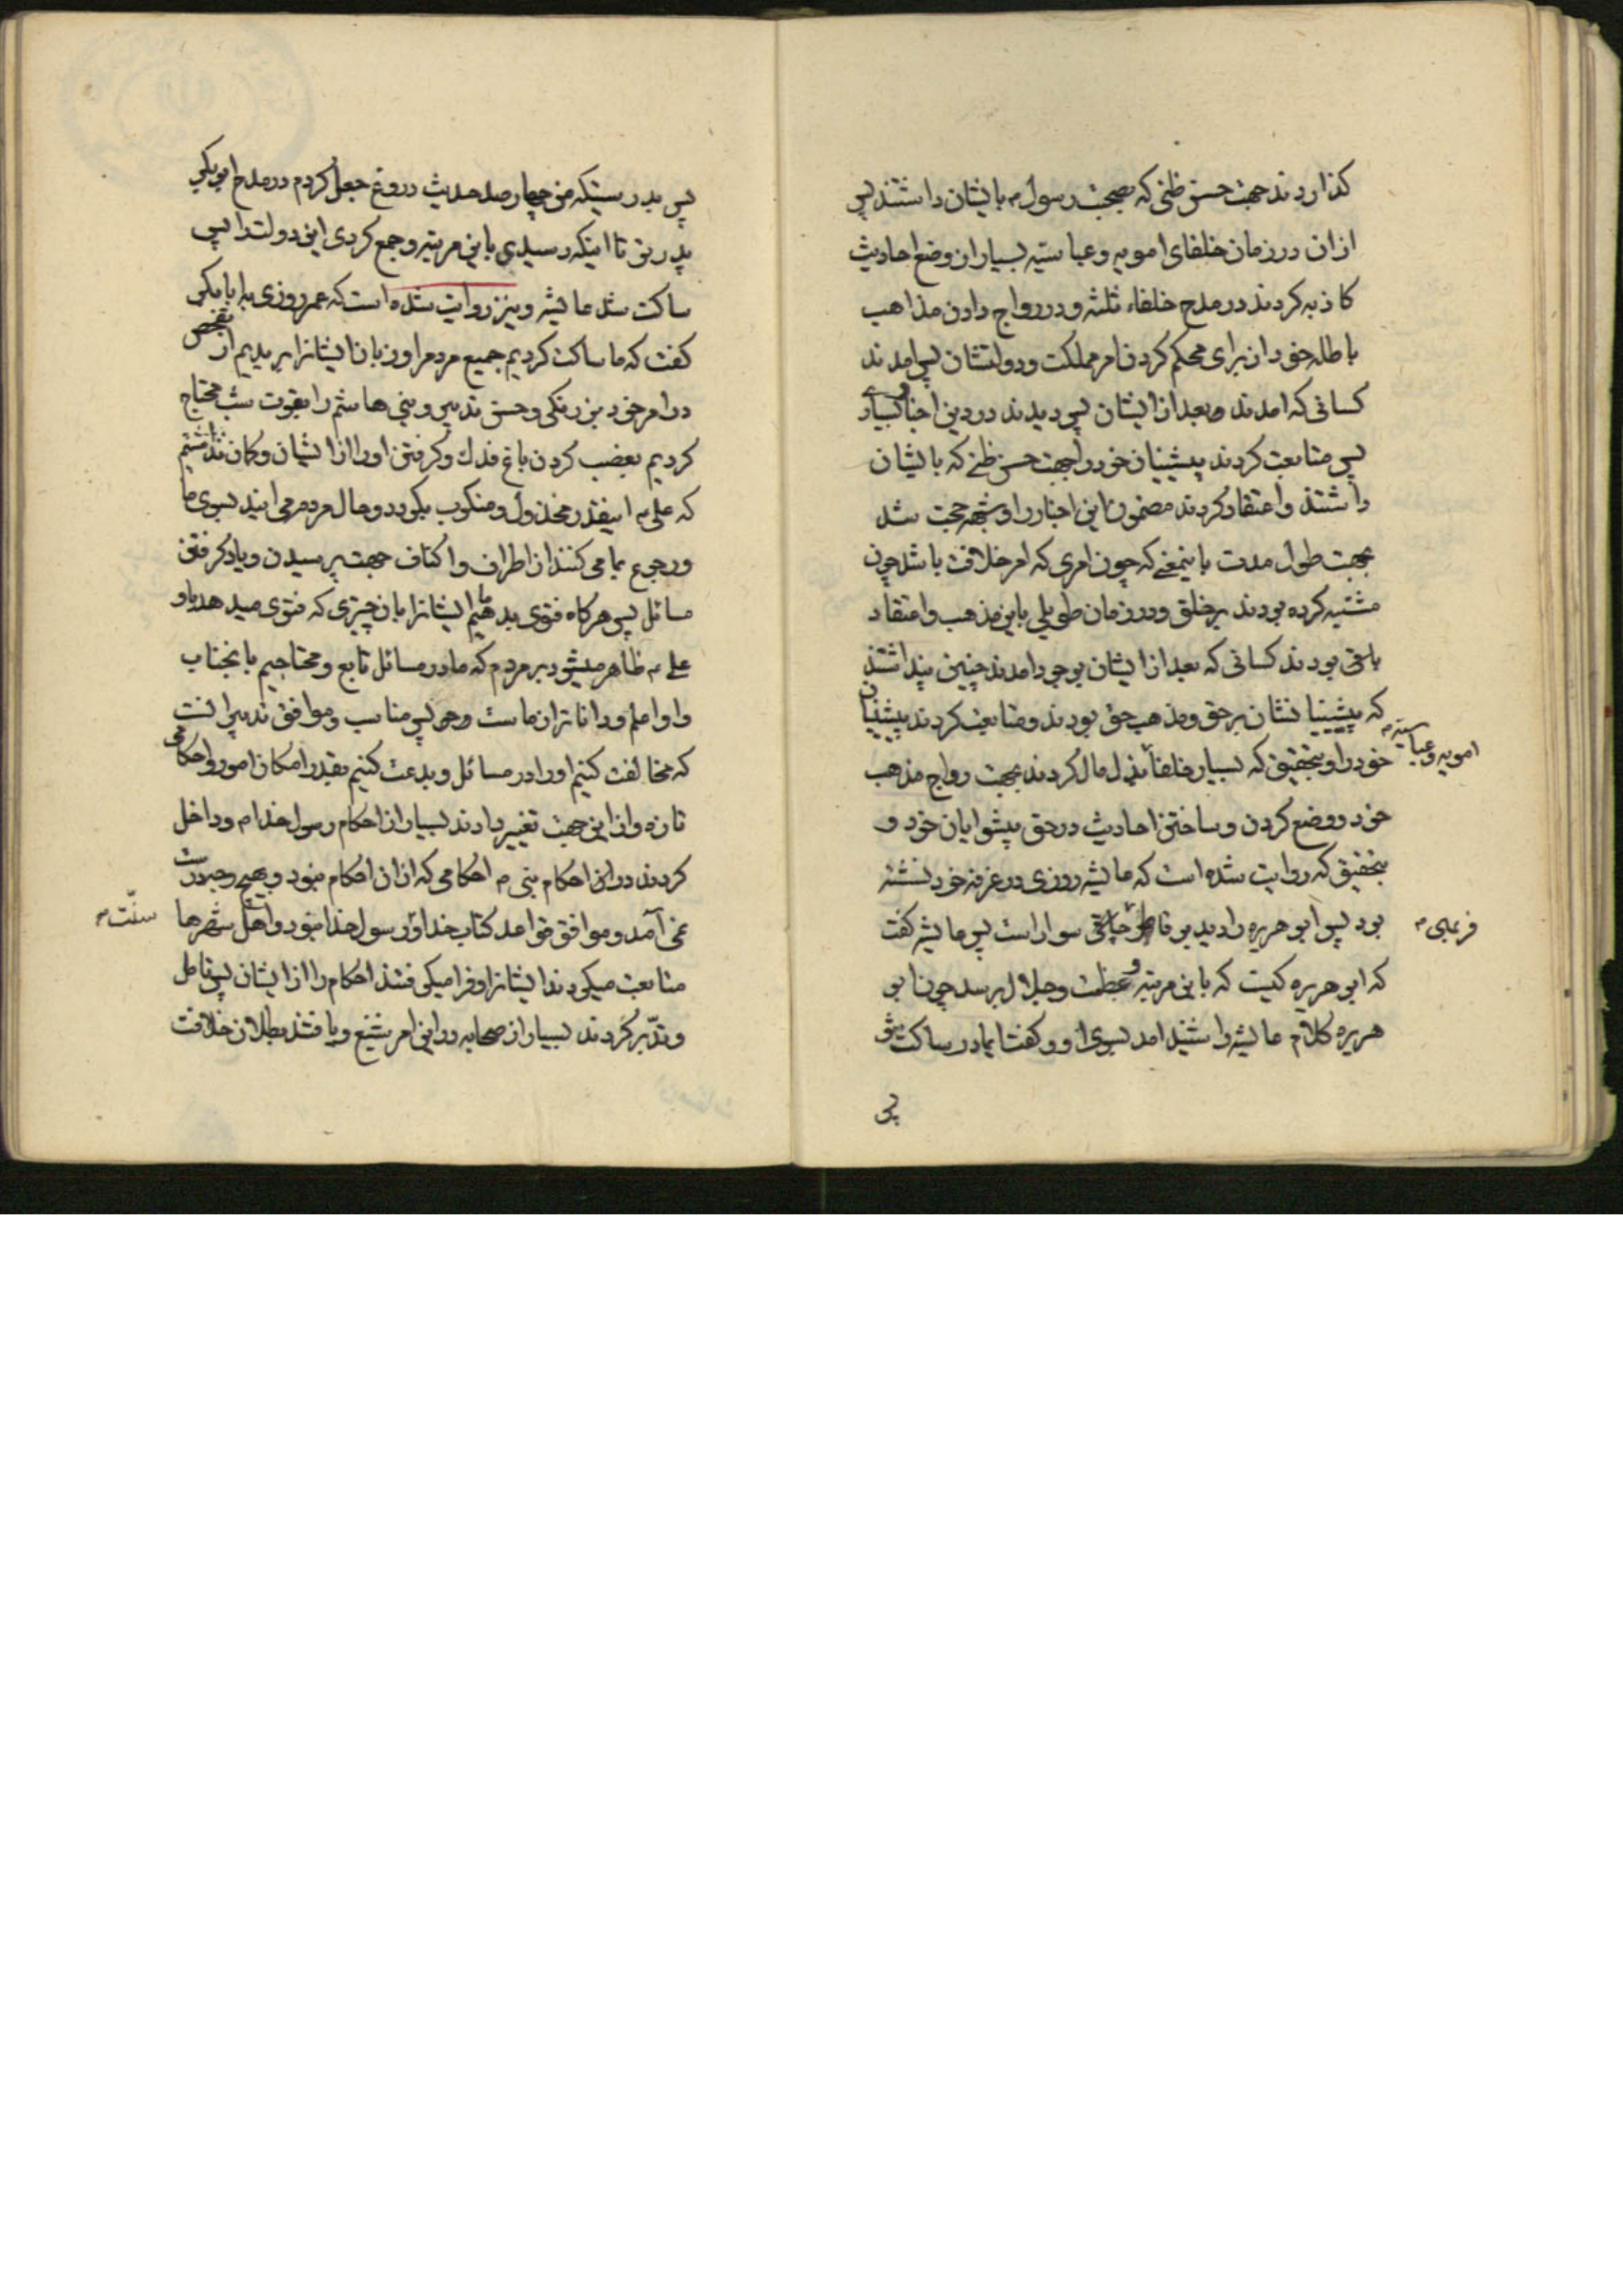 کذاردند جهت حسن ظنی که بصحبت رسول م بایشان داشتند پس
از ان در زمان خلفای امویه و عباسیه بسیار از وضع احادیث
کاذبه کردند در مدح خلفاء ثلثه و در رواج دادن مذاهب
باطله خود از برای محکم کردن امر مملکت و دولتشان پس امدند
کسانی که امدند و بعد از ایشان پس دیدند در دین اخبار بسیار
پس متابعت کردند پیشینیان خود را بجهت حسن ظنی که بایشان
داشتند و اعتقاد کردند مضمون این اخبار را و شبهه حجت شد
بجهت طول مدت باینمعنی که چون امری که امر خلافت باشد چون
مشتبه کرده بودند بر خلق و در زمان طویلی باین مذهب و اعتقاد
باقی بودند کسانی که بعد از ایشان بوجود امدند چنین پنداشتند
که پیشینیانشان بر حق و مذهب حق بودند و متابعت کردند پیشینیان
خود را و بتحقیق که بسیار خلفا بذل مال کردند بجهت رواج مذهب
امویه و عباسیه م
خود و وضع کردن و ساختن احادیث در حق پیشوایان خود و
بتحقیق که روایت شده است که عایشه روزی در غرفه خود نشسته
بود پس ابو هریره را دید بر سوار است پس عایشه کفت
فربهی م
که ابو هریره کیست که باین مرتبه و عظمت و جلال برسد چون ابو
هریره کلام عایشه را شنید امد بسوی او و کفت ایمادر ساکت شو
پس
پس بدرستیکه من چهار صد حدیث دروغ جعل کردم در مدح ابو بکر
پدر تو تا اینکه رسیدی باین مرتبه و جمع کردی این دولت را پس
ساکت شد عایشه و نیز روایت شده است که عمر روزی به ابا بکر
کفت که ما ساکت کردیم جمیع مردم را و زبان ایشانرا بریدیم از تفحص
در امر خود بزرنکی و حسن تدبیر و بنی هاشم را بقوت شب محتاج
کردیم بغضب کردن باغ فدك و کرفتن او را از ایشان و کمان نداشتم
که علی م اینقدر مخذول و منکوب بکردد و حال مردم می ایند بسوی ما
و رجوع بما می کنند از اطراف و اکناف جهت پرسیدن و یاد کرفتن
مسائل پس هر کاه فتوی بدهیم ما ایشانرا بان چیزی که فتوی میدهد باو
علی م ظاهر میشود بر مردم که ما در مسائل تابع و محتاجیم بانجناب
و او اعلم و داناتر از ماست و حال پس مناسب و موافق تدبیر انست
که مخالفت کنیم او را در مسائل و بدعت کنیم بقدر امکان امور و احکامی
تازه و از این جهت تغییر دادند بسیار از احکام رسول خدا م و داخل
کردند در ان احکام نبی م احکامی که از ان احکام نبود و بهیچ وجه درست
نمی آمد و موافق قواعد کتاب خدا و رسول خدا نبود و اهل شهرها
سنّت م
متابعت میکردند ایشانرا و فرا میکرفتند احکام را از ایشان پس تامل
و تدّبر کردند بسیار از صحابه در این امر شنیع و یافتند بطلان خلافت